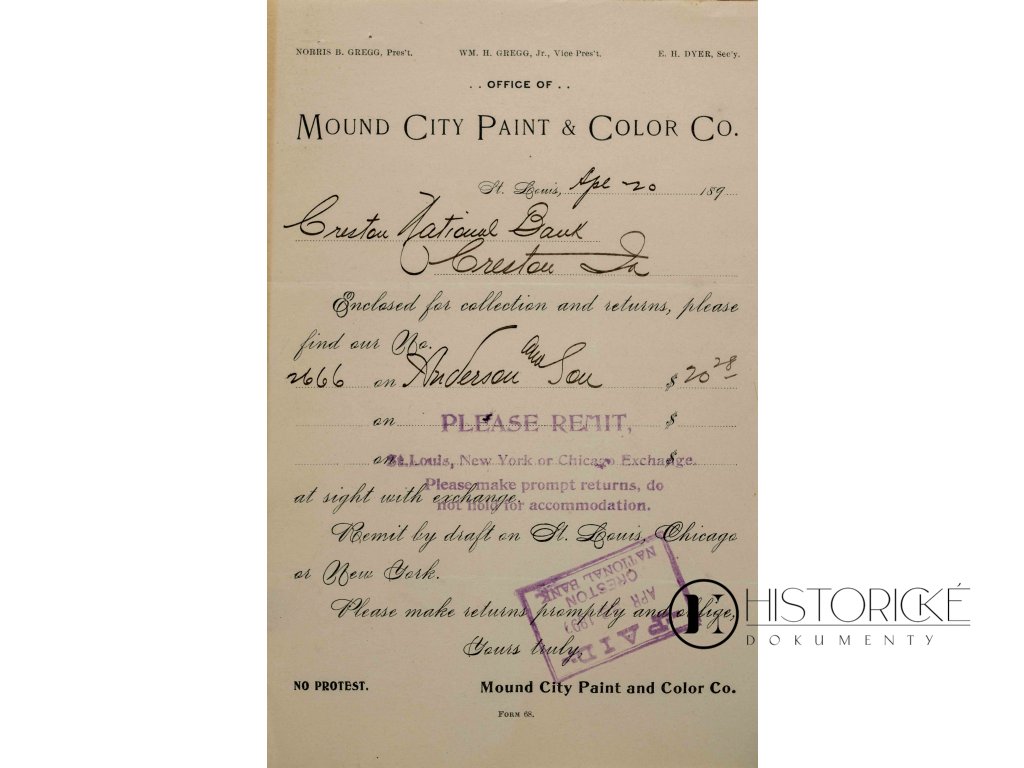 NORRIS B. GREGG, Pres't. WM. H. GREGG, Jr., Vice Pres't. E. H. DYER, Sec'y.
. . OFFICE OF . .
MOUND CITY PAINT & COLOR CO.
St. Louis, Apl 20 189
Creston National Bank
Creston Ia
Enclosed for collection and returns, please
find our No.
2666 on Anderson and Son $ 20 28
on $
PLEASE REMIT,
on $
St. Louis, New York or Chicago Exchange.
Please make prompt returns, do
not hold for accommodation.
at sight with exchange.
Remit by draft on St. Louis, Chicago
or New York.
Please make returns promptly and oblige,
Yours truly,
PAID
APR
CRESTON
NATIONAL BANK
HISTORICKÉ
DOKUMENTY
NO PROTEST. Mound City Paint and Color Co.
FORM 68.